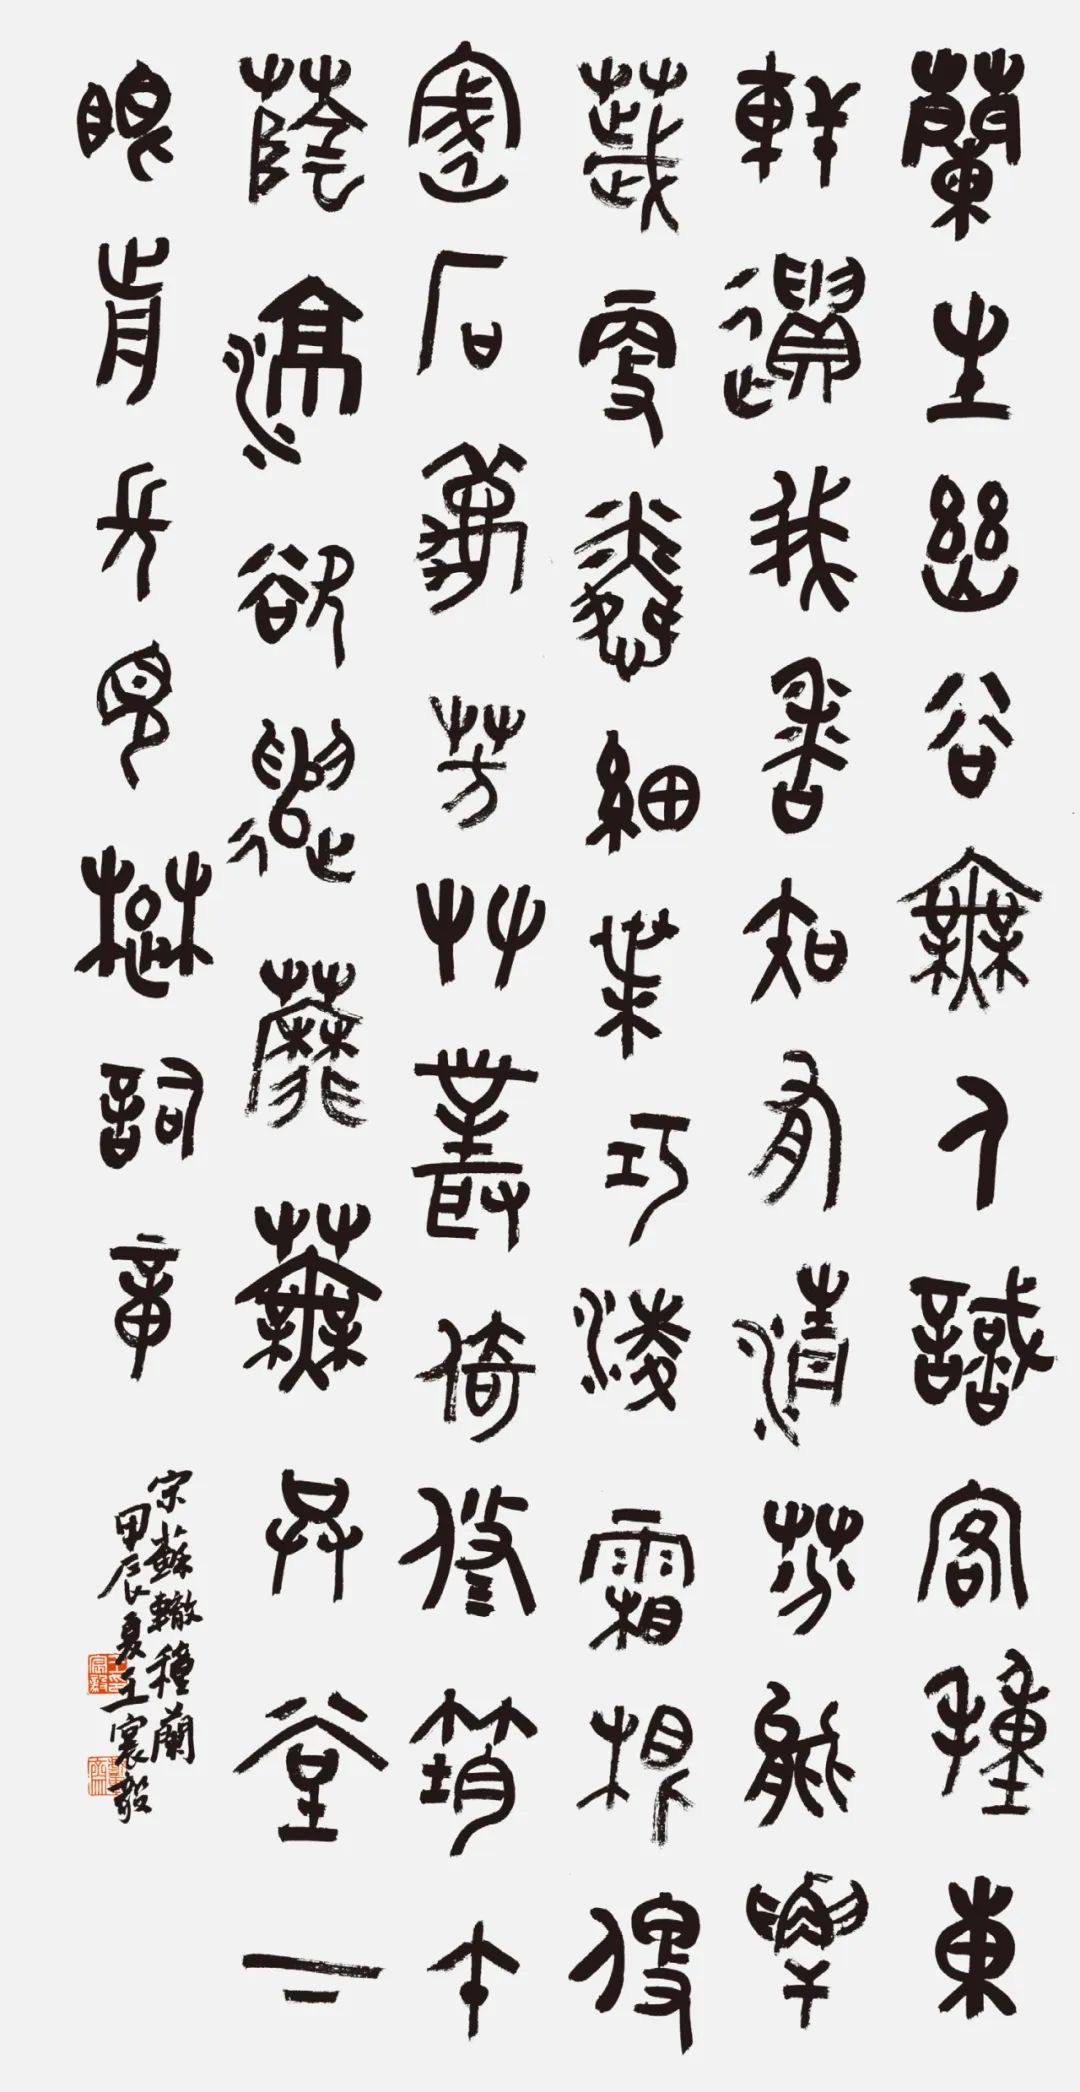 蘭生幽谷無人識客種東
軒遺我香知有清芬能解
薉更憐細葉巧淩霜根便
密石秋芳草叢倚修筠午
蔭涼欲遣蘼蕪共堂下
眼前長見楚詞章
宋蘇轍種蘭
甲辰夏王寰毅